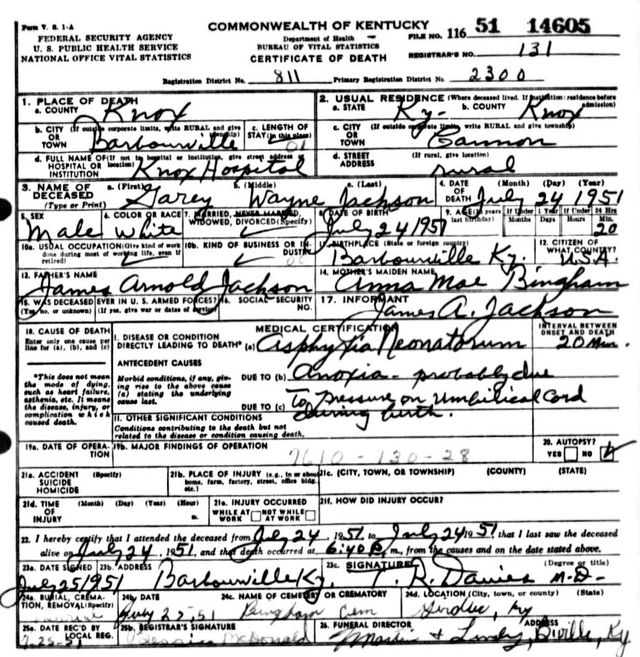 Form V. S. 1-A
COMMONWEALTH OF KENTUCKY
FEDERAL SECURITY AGENCY
U. S. PUBLIC HEALTH SERVICE
NATIONAL OFFICE VITAL STATISTICS
Department of Health
BUREAU OF VITAL STATISTICS
CERTIFICATE OF DEATH
FILE NO. 116 51 14605
REGISTRAR'S NO. 131
Registration District No. 811 Primary Registration District No. 2300
1. PLACE OF DEATH
a. COUNTY Knox
2. USUAL RESIDENCE (Where deceased lived. If institution: residence before admission)
a. STATE Ky. b. COUNTY Knox
b. CITY (If outside corporate limits, write RURAL and give township) OR TOWN Barbourville
c. LENGTH OF STAY (in this place) 01
c. CITY (If outside corporate limits, write RURAL and give township) OR TOWN Cannon
d. FULL NAME OF (If not in hospital or institution, give street address or location) HOSPITAL OR INSTITUTION Knox Hospital
d. STREET ADDRESS (If rural, give location) rural
3. NAME OF DECEASED (Type or Print) a. (First) Garey b. (Middle) Wayne c. (Last) Jackson
4. DATE OF DEATH (Month) (Day) (Year) July 24 1951
5. SEX Male
6. COLOR OR RACE White
7. MARRIED, NEVER MARRIED, WIDOWED, DIVORCED (Specify)
8. DATE OF BIRTH July 24 1951
9. AGE (In years last birthday) If Under 1 Year Months Days If Under 24 Hrs Hours Min. 20
10a. USUAL OCCUPATION (Give kind of work done during most of working life, even if retired)
10b. KIND OF BUSINESS OR INDUSTRY
11. BIRTHPLACE (State or foreign country) Barbourville Ky.
12. CITIZEN OF WHAT COUNTRY? U.S.A.
13. FATHER'S NAME James Arnold Jackson
14. MOTHER'S MAIDEN NAME Anna Mae Bingham
15. WAS DECEASED EVER IN U. S. ARMED FORCES? (Yes, no, or unknown) (If yes, give war or dates of service)
16. SOCIAL SECURITY NO.
17. INFORMANT James A. Jackson
18. CAUSE OF DEATH
Enter only one cause per line for (a), (b), and (c)
MEDICAL CERTIFICATION
INTERVAL BETWEEN ONSET AND DEATH
I. DISEASE OR CONDITION DIRECTLY LEADING TO DEATH* (a) Asphyxia Neonatorum 20 Min.
*This does not mean the mode of dying, such as heart failure, asthenia, etc. It means the disease, injury, or complication which caused death.
ANTECEDENT CAUSES
Morbid conditions, if any, giving rise to the above cause (a) stating the underlying cause last.
DUE TO (b) Anoxia - probably due
DUE TO (c) To pressure on Umbilical Cord
during birth.
II. OTHER SIGNIFICANT CONDITIONS
Conditions contributing to the death but not related to the disease or condition causing death.
19a. DATE OF OPERATION
19b. MAJOR FINDINGS OF OPERATION
7610-130-28
20. AUTOPSY?
YES NO
21a. ACCIDENT SUICIDE HOMICIDE (Specify)
21b. PLACE OF INJURY (e.g., in or about home, farm, factory, street, office bldg. etc.)
21c. (CITY, TOWN, OR TOWNSHIP) (COUNTY) (STATE)
21d. TIME OF INJURY (Month) (Day) (Year) (Hour) m.
21e. INJURY OCCURRED WHILE AT WORK NOT WHILE AT WORK
21f. HOW DID INJURY OCCUR?
22. I hereby certify that I attended the deceased from July 24, 1951, to July 24 1951, that I last saw the deceased
alive on July 24, 1951, and that death occurred at 6:40 P. m., from the causes and on the date stated above.
23a. DATE SIGNED July 25 1951
23b. ADDRESS Barbourville Ky.
23c. SIGNATURE T. R. Davies M.D. (Degree or title)
24a. BURIAL, CREMATION, REMOVAL (Specify)
24b. DATE July 25-51
24c. NAME OF CEMETERY OR CREMATORY Bingham Cem
24d. LOCATION (City, town, or county) (State) Ky
25a. DATE REC'D BY LOCAL REG. 7-25-51
25b. REGISTRAR'S SIGNATURE McDonald
26. FUNERAL DIRECTOR ADDRESS B'ville, Ky